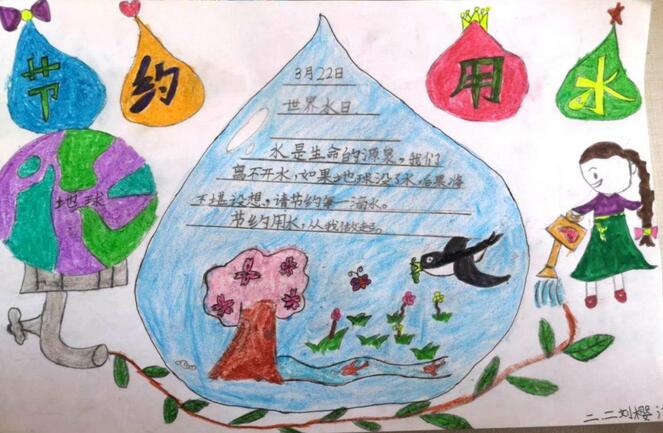 节约用水
3月22日
世界水日
水是生命的源泉。我们
离不开水，如果地球没了水后果将
不堪设想。请节约每一滴水。
节约用水，从我做起。
地球
二.二刘樱